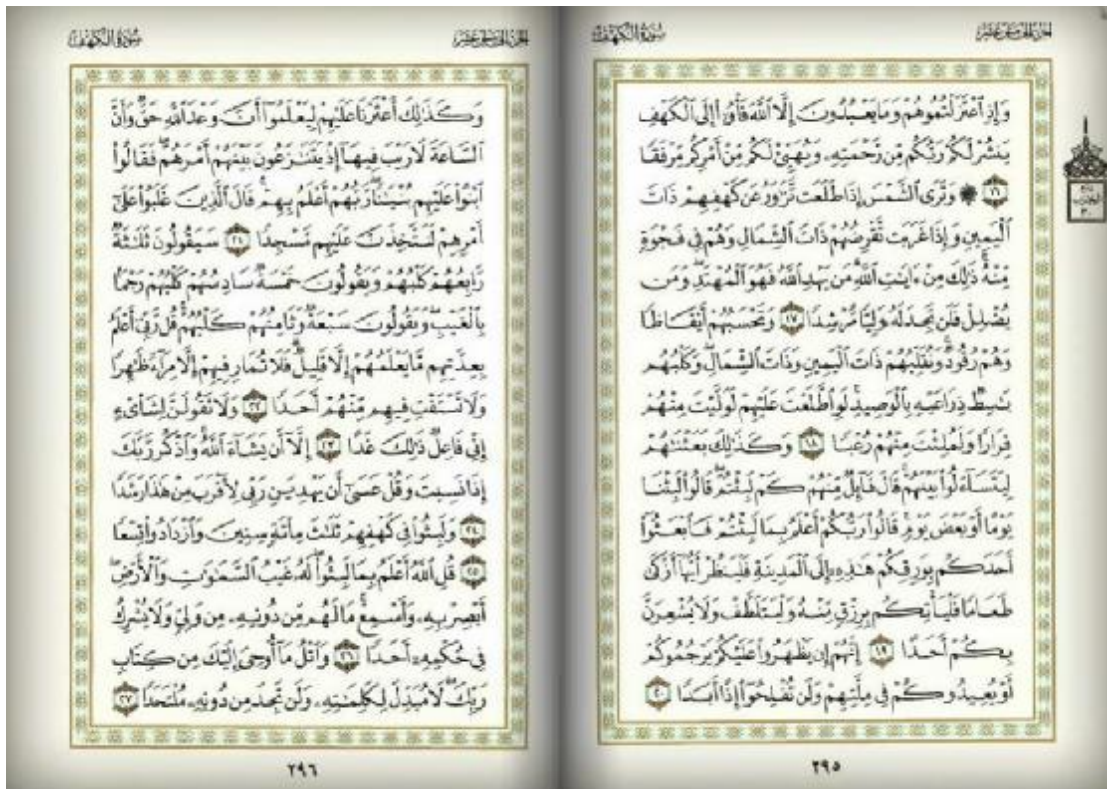 الجزء الخامس عشر
سورة الكهف
وَإِذِ ٱعْتَزَلْتُمُوهُمْ وَمَا يَعْبُدُونَ إِلَّا ٱللَّهَ فَأْوُۥٓا۟ إِلَى ٱلْكَهْفِ
يَنشُرْ لَكُمْ رَبُّكُم مِّن رَّحْمَتِهِۦ وَيُهَيِّئْ لَكُم مِّنْ أَمْرِكُم مِّرْفَقًا
١٦ ۞ وَتَرَى ٱلشَّمْسَ إِذَا طَلَعَت تَّزَٰوَرُ عَن كَهْفِهِمْ ذَاتَ
ٱلْيَمِينِ وَإِذَا غَرَبَت تَّقْرِضُهُمْ ذَاتَ ٱلشِّمَالِ وَهُمْ فِى فَجْوَةٍ
مِّنْهُ ۚ ذَٰلِكَ مِنْ ءَايَٰتِ ٱللَّهِ ۗ مَن يَهْدِ ٱللَّهُ فَهُوَ ٱلْمُهْتَدِ ۖ وَمَن
يُضْلِلْ فَلَن تَجِدَ لَهُۥ وَلِيًّا مُّرْشِدًا ١٧ وَتَحْسَبُهُمْ أَيْقَاظًا
وَهُمْ رُقُودٌ ۚ وَنُقَلِّبُهُمْ ذَاتَ ٱلْيَمِينِ وَذَاتَ ٱلشِّمَالِ ۖ وَكَلْبُهُم
بَٰسِطٌ ذِرَاعَيْهِ بِٱلْوَصِيدِ ۚ لَوِ ٱطَّلَعْتَ عَلَيْهِمْ لَوَلَّيْتَ مِنْهُمْ
فِرَارًا وَلَمُلِئْتَ مِنْهُمْ رُعْبًا ١٨ وَكَذَٰلِكَ بَعَثْنَٰهُمْ
لِيَتَسَآءَلُوا۟ بَيْنَهُمْ ۚ قَالَ قَآئِلٌ مِّنْهُمْ كَمْ لَبِثْتُمْ ۖ قَالُوا۟ لَبِثْنَا
يَوْمًا أَوْ بَعْضَ يَوْمٍ ۚ قَالُوا۟ رَبُّكُمْ أَعْلَمُ بِمَا لَبِثْتُمْ فَٱبْعَثُوٓا۟
أَحَدَكُم بِوَرِقِكُمْ هَٰذِهِۦٓ إِلَى ٱلْمَدِينَةِ فَلْيَنظُرْ أَيُّهَآ أَزْكَىٰ
طَعَامًا فَلْيَأْتِكُم بِرِزْقٍ مِّنْهُ وَلْيَتَلَطَّفْ وَلَا يُشْعِرَنَّ
بِكُمْ أَحَدًا ١٩ إِنَّهُمْ إِن يَظْهَرُوا۟ عَلَيْكُمْ يَرْجُمُوكُمْ
أَوْ يُعِيدُوكُمْ فِى مِلَّتِهِمْ وَلَن تُفْلِحُوٓا۟ إِذًا أَبَدًا ٢٠
٢٩٥
الجزء الخامس عشر
سورة الكهف
وَكَذَٰلِكَ أَعْثَرْنَا عَلَيْهِمْ لِيَعْلَمُوٓا۟ أَنَّ وَعْدَ ٱللَّهِ حَقٌّ وَأَنَّ
ٱلسَّاعَةَ لَا رَيْبَ فِيهَآ إِذْ يَتَنَٰزَعُونَ بَيْنَهُمْ أَمْرَهُمْ ۖ فَقَالُوا۟
ٱبْنُوا۟ عَلَيْهِم بُنْيَٰنًا ۖ رَّبُّهُمْ أَعْلَمُ بِهِمْ ۚ قَالَ ٱلَّذِينَ غَلَبُوا۟ عَلَىٰٓ
أَمْرِهِمْ لَنَتَّخِذَنَّ عَلَيْهِم مَّسْجِدًا ٢١ سَيَقُولُونَ ثَلَٰثَةٌ
رَّابِعُهُمْ كَلْبُهُمْ وَيَقُولُونَ خَمْسَةٌ سَادِسُهُمْ كَلْبُهُمْ رَجْمًۢا
بِٱلْغَيْبِ ۖ وَيَقُولُونَ سَبْعَةٌ وَثَامِنُهُمْ كَلْبُهُمْ ۚ قُل رَّبِّىٓ أَعْلَمُ
بِعِدَّتِهِم مَّا يَعْلَمُهُمْ إِلَّا قَلِيلٌ ۗ فَلَا تُمَارِ فِيهِمْ إِلَّا مِرَآءً ظَٰهِرًا
وَلَا تَسْتَفْتِ فِيهِم مِّنْهُمْ أَحَدًا ٢٢ وَلَا تَقُولَنَّ لِشَا۟ىْءٍ
إِنِّى فَاعِلٌ ذَٰلِكَ غَدًا ٢٣ إِلَّآ أَن يَشَآءَ ٱللَّهُ ۚ وَٱذْكُر رَّبَّكَ
إِذَا نَسِيتَ وَقُلْ عَسَىٰٓ أَن يَهْدِيَنِ رَبِّى لِأَقْرَبَ مِنْ هَٰذَا رَشَدًا
٢٤ وَلَبِثُوا۟ فِى كَهْفِهِمْ ثَلَٰثَ مِا۟ئَةٍ سِنِينَ وَٱزْدَادُوا۟ تِسْعًا
٢٥ قُلِ ٱللَّهُ أَعْلَمُ بِمَا لَبِثُوا۟ ۖ لَهُۥ غَيْبُ ٱلسَّمَٰوَٰتِ وَٱلْأَرْضِ ۖ
أَبْصِرْ بِهِۦ وَأَسْمِعْ ۚ مَا لَهُم مِّن دُونِهِۦ مِن وَلِىٍّ وَلَا يُشْرِكُ
فِى حُكْمِهِۦٓ أَحَدًا ٢٦ وَٱتْلُ مَآ أُوحِىَ إِلَيْكَ مِن كِتَابِ
رَبِّكَ ۖ لَا مُبَدِّلَ لِكَلِمَٰتِهِۦ وَلَن تَجِدَ مِن دُونِهِۦ مُلْتَحَدًا ٢٧
٢٩٦